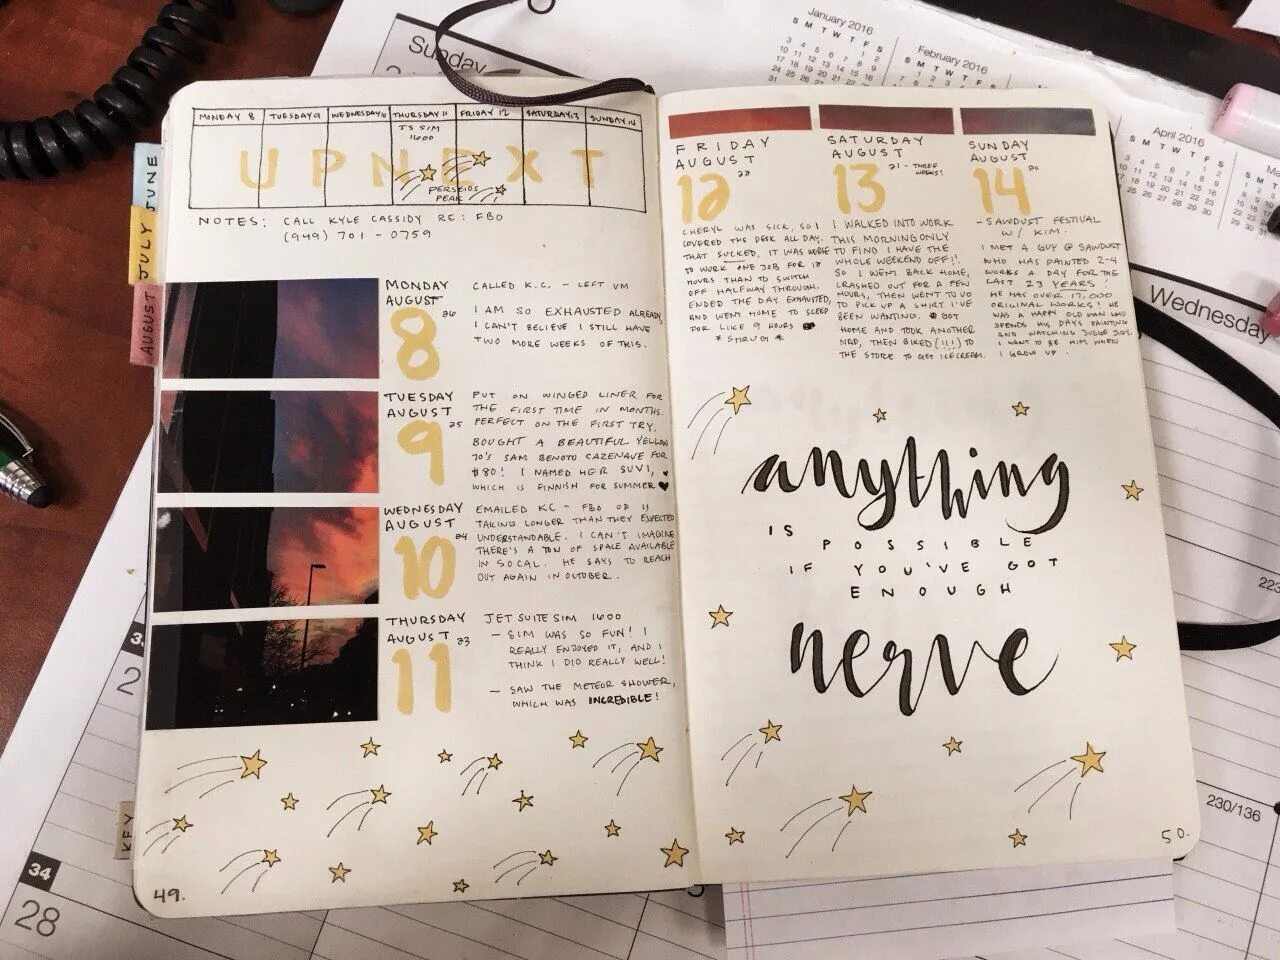 Sunday
January 2016
S M T W T F S
February 2016
S M T W T F S
April 2016
S M T W T F S
Wednesday
230/136
34
28
JUNE
JULY
AUGUST
KEY
MONDAY 8 TUESDAY 9 WEDNESDAY 10 THURSDAY 11 FRIDAY 12 SATURDAY 13 SUNDAY 14
JS SIM
1600
UP NEXT
PERSEIDS
PEAK
NOTES: CALL KYLE CASSIDY RE: FBO
(949) 701-0759
MONDAY
AUGUST
26
8
CALLED K.C. - LEFT VM
I AM SO EXHAUSTED ALREADY,
I CAN'T BELIEVE I STILL HAVE
TWO MORE WEEKS OF THIS.
TUESDAY
AUGUST
25
9
PUT ON WINGED LINER FOR
THE FIRST TIME IN MONTHS.
PERFECT ON THE FIRST TRY.
BOUGHT A BEAUTIFUL YELLOW
70'S SAM BENOTO CAZENAVE FOR
$80! I NAMED HER SUVI,
WHICH IS FINNISH FOR SUMMER ♥
WEDNESDAY
AUGUST
24
10
EMAILED KC - FBO OD IS
TAKING LONGER THAN THEY EXPECTED
UNDERSTANDABLE. I CAN'T IMAGINE
THERE'S A TON OF SPACE AVAILABLE
IN SOCAL. HE SAYS TO REACH
OUT AGAIN IN OCTOBER.
THURSDAY
AUGUST
23
11
JET SUITE SIM 1600
- SIM WAS SO FUN! I
REALLY ENJOYED IT, AND I
THINK I DID REALLY WELL!
- SAW THE METEOR SHOWER,
WHICH WAS INCREDIBLE!
49.
FRIDAY
AUGUST
22
12
CHERYL WAS SICK, SO I
COVERED THE DESK ALL DAY.
THAT SUCKED. IT WAS WORSE
TO WORK ONE JOB FOR 12
HOURS THAN TO SWITCH
OFF HALFWAY THROUGH.
ENDED THE DAY EXHAUSTED,
AND WENT HOME TO SLEEP
FOR LIKE 9 HOURS
* SHRUG *
SATURDAY
AUGUST
21 - THREE
WEEKS!
13
I WALKED INTO WORK
THIS MORNING ONLY
TO FIND I HAVE THE
WHOLE WEEKEND OFF!!
SO I WENT BACK HOME,
CRASHED OUT FOR A FEW
HOURS, THEN WENT TO UO
TO PICK UP A SHIRT I'VE
BEEN WANTING. GOT
HOME AND TOOK ANOTHER
NAP, THEN BIKED (!!!) TO
THE STORE TO GET ICE CREAM.
SUNDAY
AUGUST
20
14
- SAWDUST FESTIVAL
W/ KIM.
I MET A GUY @ SAWDUST
WHO HAS PAINTED 2-4
WORKS A DAY FOR THE
LAST 23 YEARS!
HE HAS OVER 17,000
ORIGINAL WORKS! HE
WAS A HAPPY OLD MAN WHO
SPENDS HIS DAYS PAINTING
AND WATCHING JUDGE JUDY.
I WANT TO BE HIM WHEN
I GROW UP.
anything
IS
POSSIBLE
IF YOU'VE GOT
ENOUGH
nerve
50.